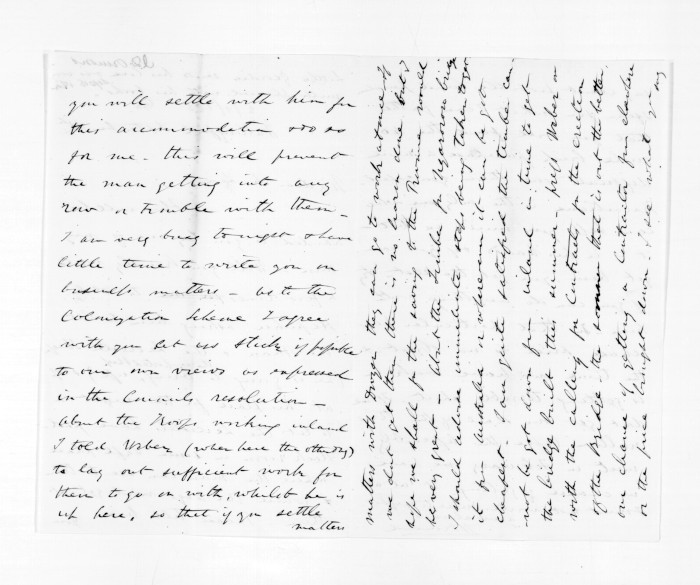 you will settle with him for
this accommodation &c &c &c
for me. This will prevent
the man getting into any
row or trouble with them —
I am very busy tonight & have
little time to write you on
business matters — as to the
Colonization scheme I agree
with you let us stick if possible
to our own views as expressed
in the Councils resolution —
about the Troops working inland
I told Weber (when here the other day)
to lay out sufficient work for
them to go on with, whilst he is
up here, so that if you settle
matters
matters with Dwyer they can go to work at once if
we dont get them there is no harm done but if
we shall for the saving to the Province would
be very great — about the Timber for Ngaroro bridge
I should advise immediate steps being taken to get
it from Australia or wherever it can be got
cheapest. I am quite satisfied the timber can
not be got down from inland in time to get
the bridge built this summer — press Weber on
with the calling for Contracts for the erection
of the Bridge the that is out the better
our chance of getting a Contractor from elsewhere
or the price brought down. I see what you say